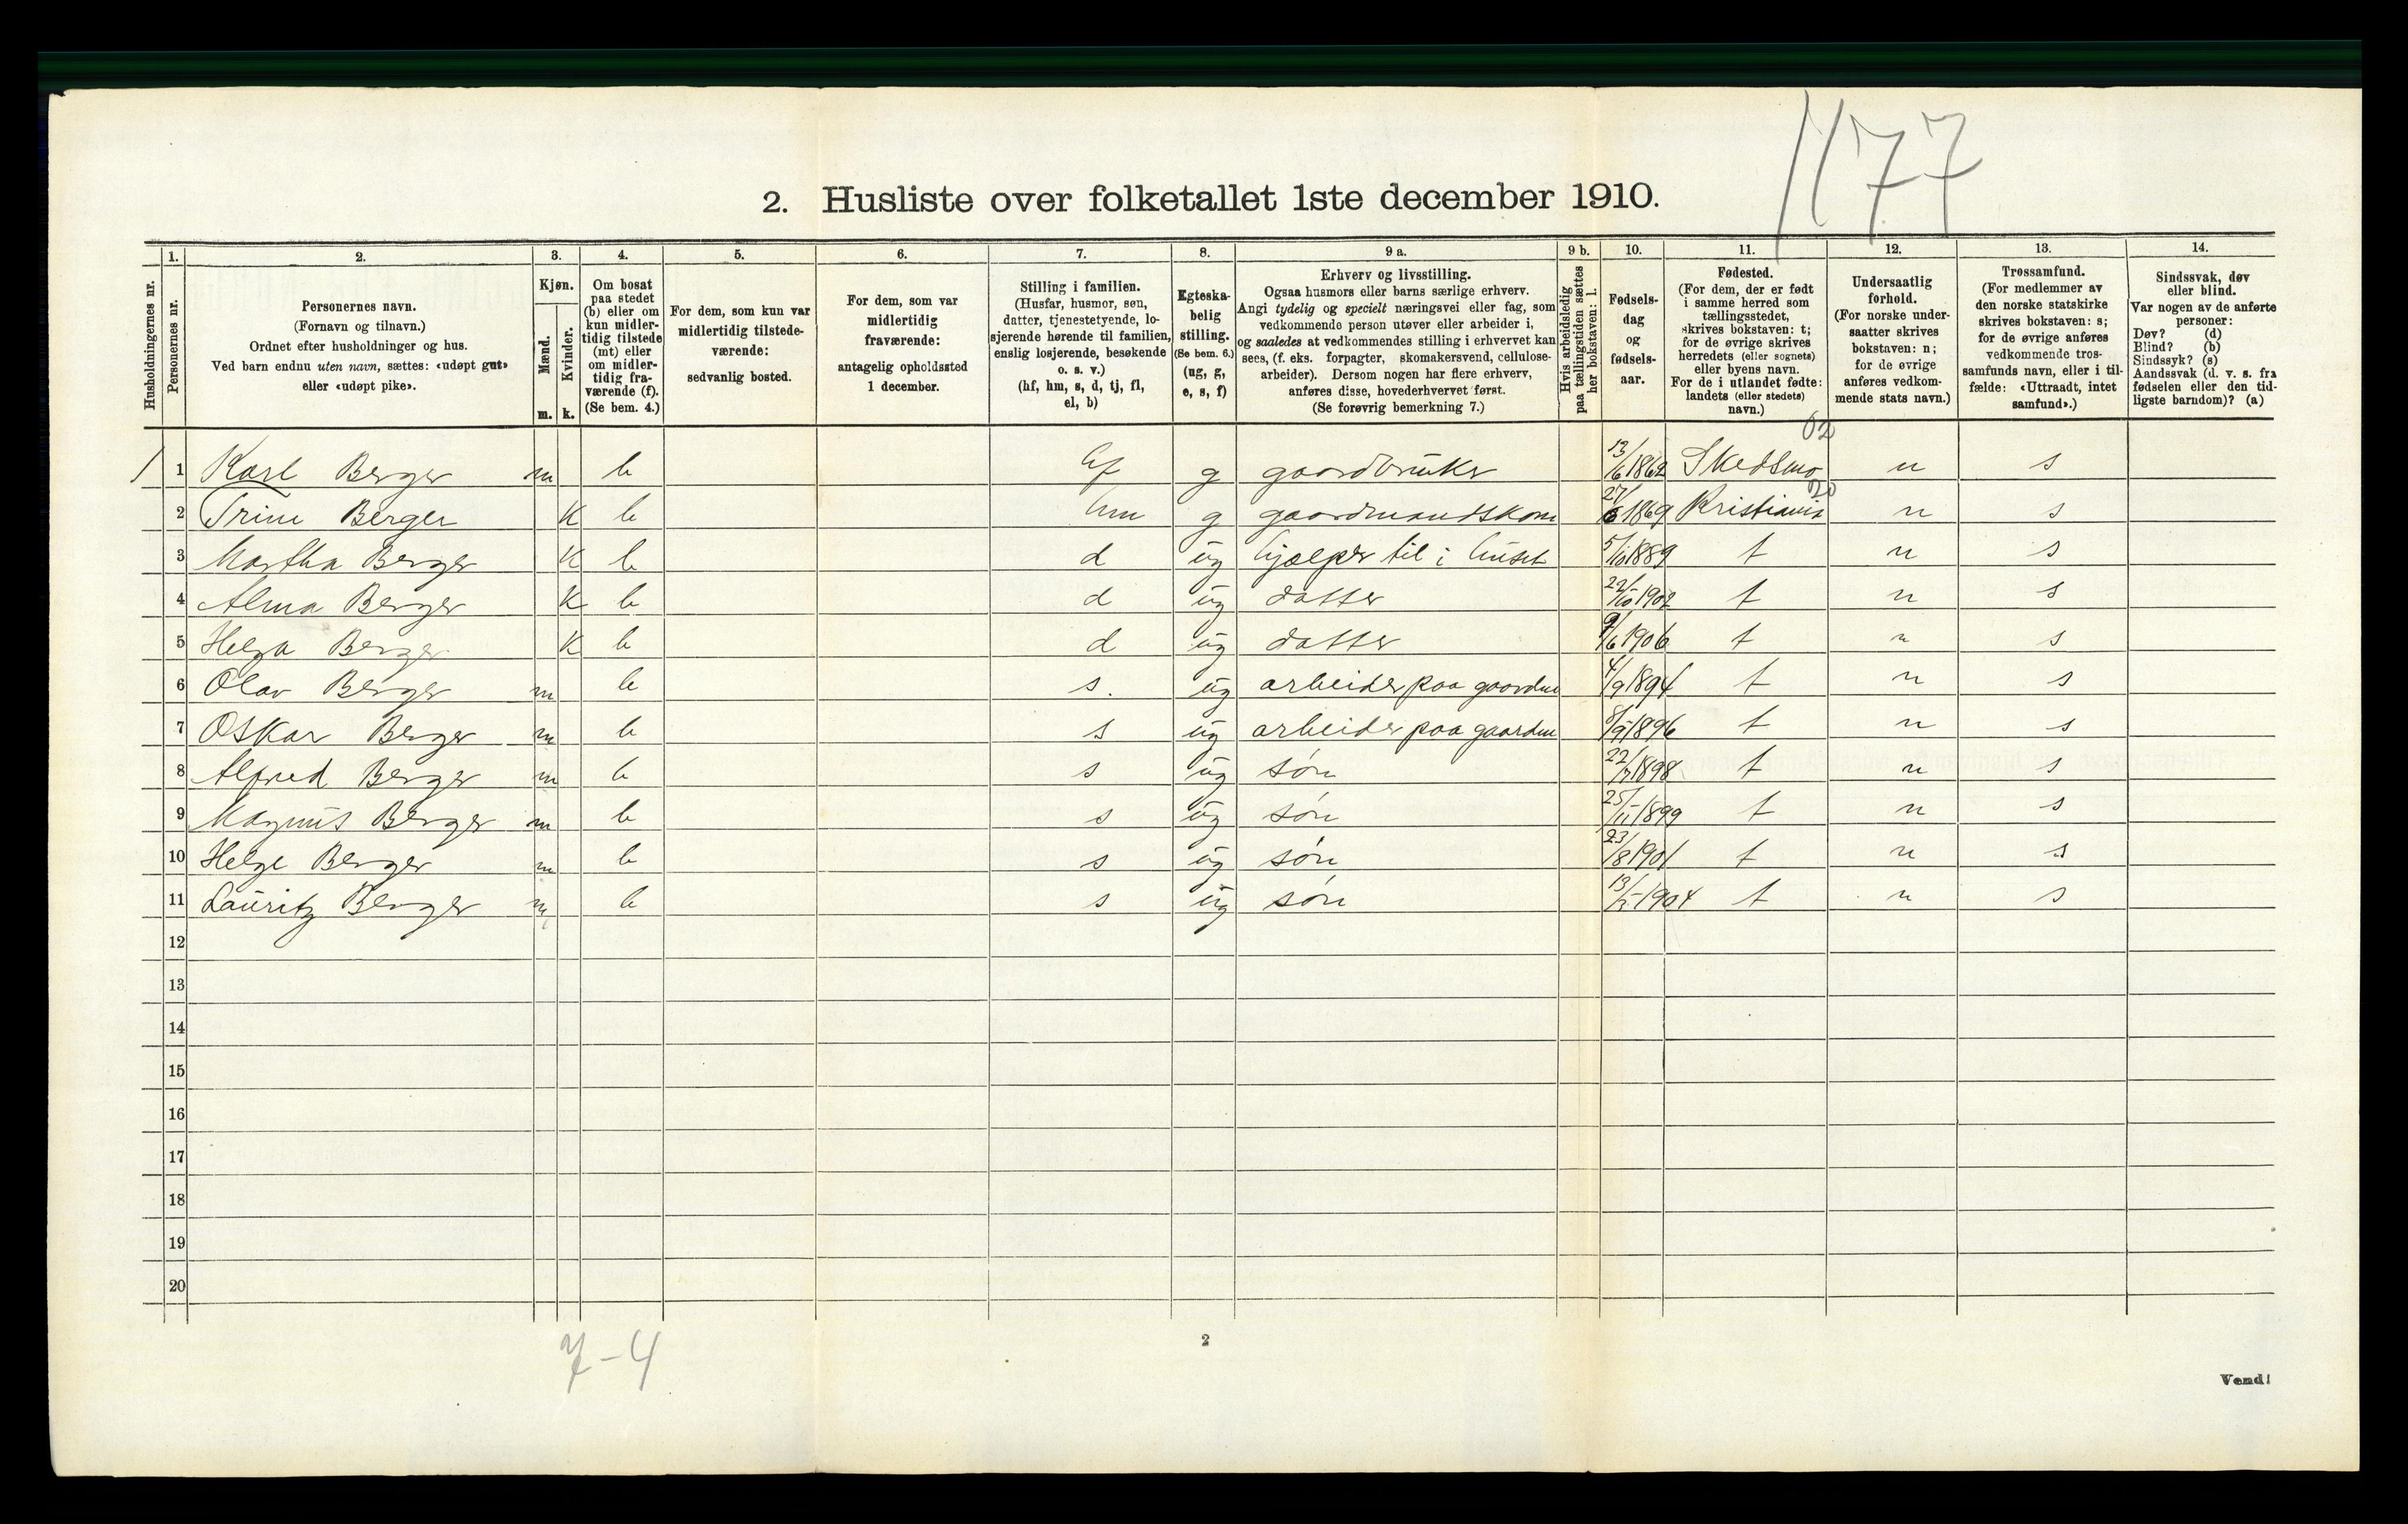 1177
2. Husliste over folketallet 1ste december 1910.
Husholdningernes nr.
1.
Personernes nr.
2.
Personernes navn.
(Fornavn og tilnavn.)
Ordnet efter husholdninger og hus.
Ved barn endnu uten navn, sættes: «udøpt gut»
eller «udøpt pike».
3.
Kjøn.
Mænd.
m.
Kvinder.
k.
4.
Om bosat
paa stedet
(b) eller om
kun midler-
tidig tilstede
(mt) eller
om midler-
tidig fra-
værende (f).
(Se bem. 4.)
5.
For dem, som kun var
midlertidig tilstede-
værende:
sedvanlig bosted.
6.
For dem, som var
midlertidig
fraværende:
antagelig opholdssted
1 december.
7.
Stilling i familien.
(Husfar, husmor, søn,
datter, tjenestetyende, lo-
sjerende hørende til familien,
enslig losjerende, besøkende
o. s. v.)
(hf, hm, s, d, tj, fl,
el, b)
8.
Egteska-
belig
stilling.
(Se bem. 6.)
(ug, g,
e, s, f)
9 a.
Erhverv og livsstilling.
Ogsaa husmors eller barns særlige erhverv.
Angi tydelig og specielt næringsvei eller fag, som
vedkommende person utøver eller arbeider i,
og saaledes at vedkommendes stilling i erhvervet kan
sees, (f. eks. forpagter, skomakersvend, cellulose-
arbeider). Dersom nogen har flere erhverv,
anføres disse, hovederhvervet først.
(Se forøvrig bemerkning 7.)
9 b.
Hvis arbeidsledig
paa tællingstiden sættes
her bokstaven: l.
10.
Fødsels-
dag
og
fødsels-
aar.
11.
Fødested.
(For dem, der er født
i samme herred som
tællingsstedet,
skrives bokstaven: t;
for de øvrige skrives
herredets (eller sognets)
eller byens navn.
For de i utlandet fødte:
landets (eller stedets)
navn.)
12.
Undersaatlig
forhold.
(For norske under-
saatter skrives
bokstaven: n;
for de øvrige
anføres vedkom-
mende stats navn.)
13.
Trossamfund.
(For medlemmer av
den norske statskirke
skrives bokstaven: s;
for de øvrige anføres
vedkommende tros-
samfunds navn, eller i til-
fælde: «Uttraadt, intet
samfund».)
14.
Sindssvak, døv
eller blind.
Var nogen av de anførte
personer:
Døv? (d)
Blind? (b)
Sindssyk? (s)
Aandssvak (d. v. s. fra
fødselen eller den tid-
ligste barndom)? (a)
1 1 Karl Berger m b hf g gaardbruker 13/6 1862 Skedsmo 02 n s
2 Trine Berger K b hm g gaardmandskone 27/6 1869 Kristiania n s
3 Martha Berger K b d ug hjælper til i huset 5/10 1889 t n s
4 Alma Berger K b d ug datter 22/10 1902 t n s
5 Helga Berger K b d ug datter 9/6 1906 t n s
6 Olav Berger m b s. ug arbeider paa gaarden 4/9 1894 t n s
7 Oskar Berger m b s ug arbeider paa gaarden 8/9 1896 t n s
8 Alfred Berger m b s ug søn 22/7 1898 t n s
9 Magnus Berger m b s ug søn 25/11 1899 t n s
10 Helge Berger m b s ug søn 23/8 1901 t n s
11 Lauritz Berger m b s ug søn 1904 t n s
12
13
14
15
16
17
18
19
20
7-4
2
Vend!